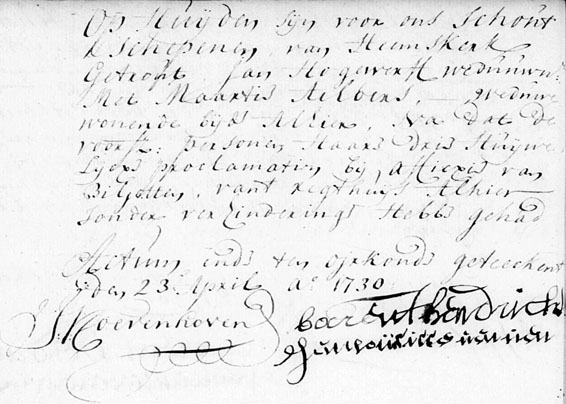 Op Huijden sijn voor ons Schout
& Schepenen, van Heemskerk
Getrout Jan Hogewerff weduwnr:
Met Maartie Aelbers, — weduwe
wonende bijde Alhier, Na dat de
voorsz: personen Haare drie Huijwe-
lijcx proclamatien bij affixie van
Biljetten, vant Regthuijs Alhier
Sonder verhinderinge Hebbe gehad
Actum ende ten oirkonde geteeckent
den 23 April Ao 1730
J. Moerenhoven
barent hendrickx